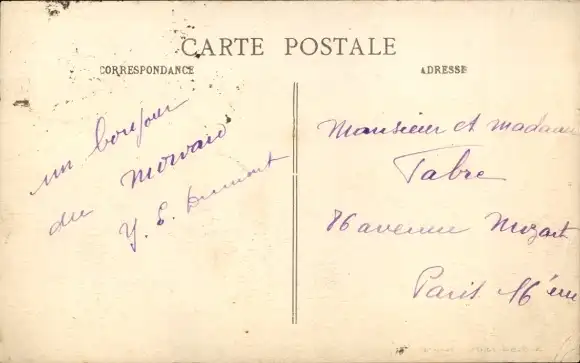 CARTE POSTALE
CORRESPONDANCE
un bonjour
du Morvand
Y. E. Dumont
ADRESSE
Monsieur et madame
Fabre
86 avenue Mozart
Paris 16ème